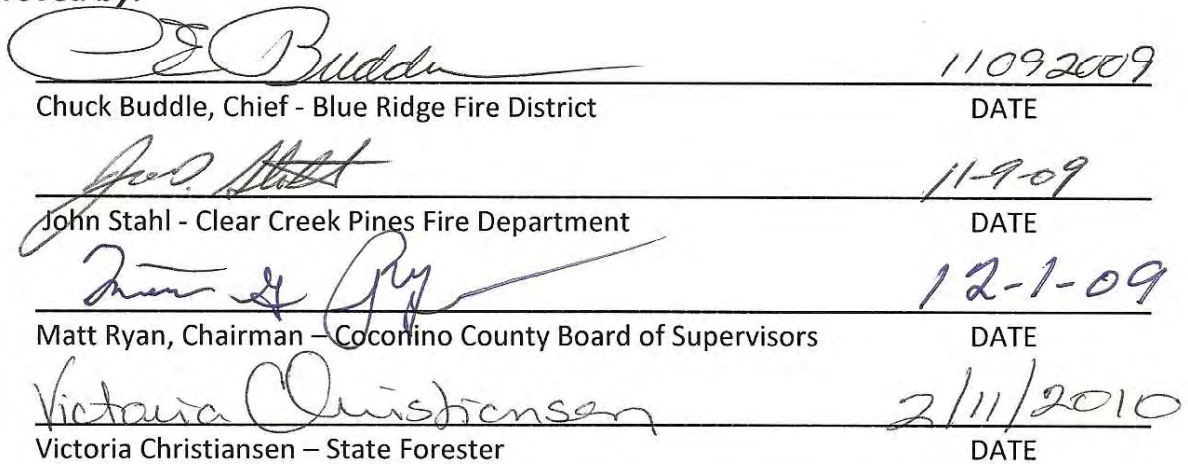 by:
Budd 11092009
Chuck Buddle, Chief - Blue Ridge Fire District DATE
11-9-09
John Stahl - Clear Creek Pines Fire Department DATE
12-1-09
Matt Ryan, Chairman – Coconino County Board of Supervisors DATE
Victoria Christiansen 2/11/2010
Victoria Christiansen – State Forester DATE